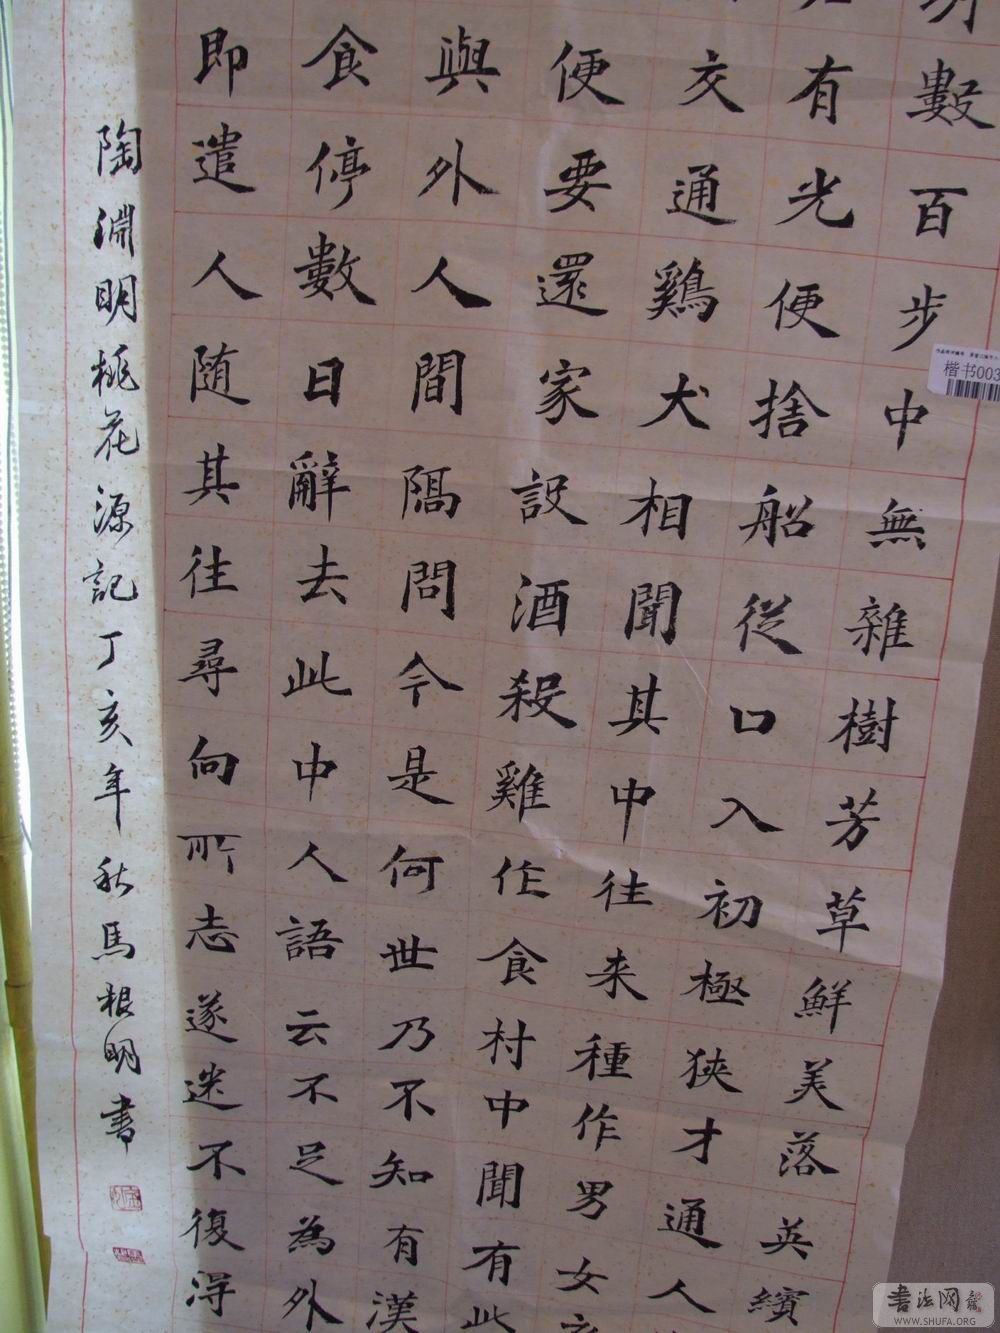 數百步中無雜樹芳草鮮美落英繽
有光便捨船從口入初極狹才通人
交通鷄犬相聞其中往来種作男女
便要還家設酒殺雞作食村中聞有此
與外人間隔問今是何世乃不知有漢
食停數日辭去此中人語云不足為外
即遣人随其往尋向所志遂迷不復得
陶淵明桃花源記丁亥年秋馬根明書
楷书003
书法网
WWW.SHUFA.ORG